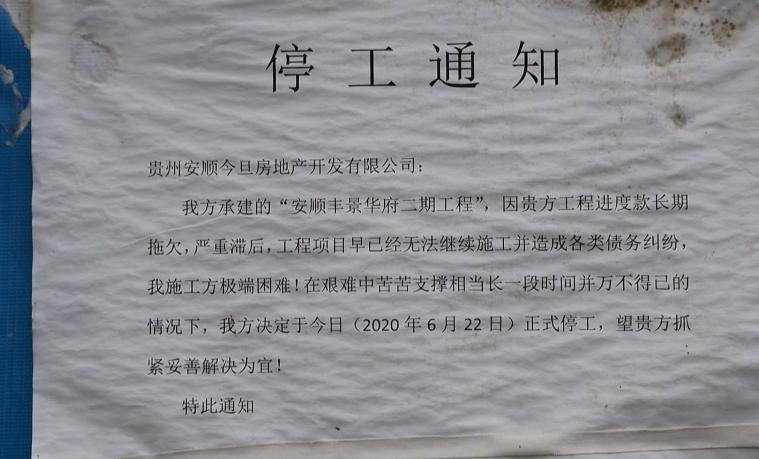 停工通知
贵州安顺今旦房地产开发有限公司：
我方承建的“安顺丰景华府二期工程”，因贵方工程进度款长期
拖欠，严重滞后，工程项目早已经无法继续施工并造成各类债务纠纷，
我施工方极端困难！在艰难中苦苦支撑相当长一段时间并万不得已的
情况下，我方决定于今日（2020 年 6 月 22 日）正式停工，望贵方抓
紧妥善解决为宜！
特此通知